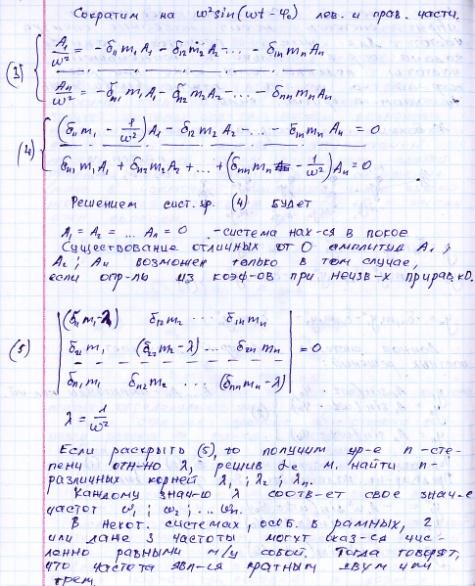 Сократим на ω² sin(ωt - φ₀) лев. и прав. части.
(3) { A₁/ω² = - δ₁₁ m₁ A₁ - δ₁₂ m₂ A₂ - ... - δ₁ₙ mₙ Aₙ
Aₙ/ω² = - δₙ₁ m₁ A₁ - δₙ₂ m₂ A₂ - ... - δₙₙ mₙ Aₙ
(4) { (δ₁₁ m₁ - 1/ω²) A₁ - δ₁₂ m₂ A₂ - ... - δ₁ₙ mₙ Aₙ = 0
δₙ₁ m₁ A₁ + δₙ₂ m₂ A₂ + ... + (δₙₙ mₙ - 1/ω²) Aₙ = 0
Решением сист. ур. (4) будет
A₁ = A₂ = ... Aₙ = 0 - система нах-ся в покое
Существование отличных от 0 амплитуд A₁;
A₂; Aₙ возможен только в том случае,
если опр-ль из коэф-ов при неизв-х прирав. к 0.
(5) | (δ₁₁ m₁ - λ) δ₁₂ m₂ ... δ₁ₙ mₙ |
| δ₂₁ m₁ (δ₂₂ m₂ - λ) ... δ₂ₙ mₙ | = 0
| δₙ₁ m₁ δₙ₂ m₂ ... (δₙₙ mₙ - λ) |
λ = 1/ω²
Если раскрыть (5), то получим ур-е n-сте-
пени отн-но λ, решив м. найти n-
различных корней λ₁; λ₂; λₙ.
Каждому знач-ю λ соотв-ет свое знач-е
частот ω₁; ω₂; ... ωₙ.
В некот. системах, особ. в рамных, 2
или 3 частоты могут оказ-ся чис-
ленно равными м/у собой. Тогда говорят,
что частота явл-ся кратным двум или
трем.